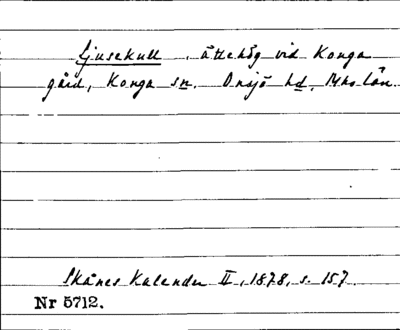 Ljusekull, ättehög vid Konga
gård, Konga sn. Onsjö hd, Mhs län.
Skånes Kalender II, 1878, s. 157.
Nr 5712.